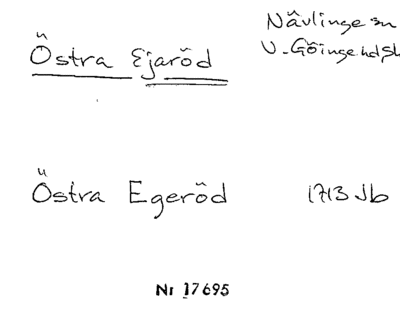 Östra Ejaröd
Nävlinge sn
V. Göinge hd, Sk
Östra Egeröd
1713 Jb
Nr 17695